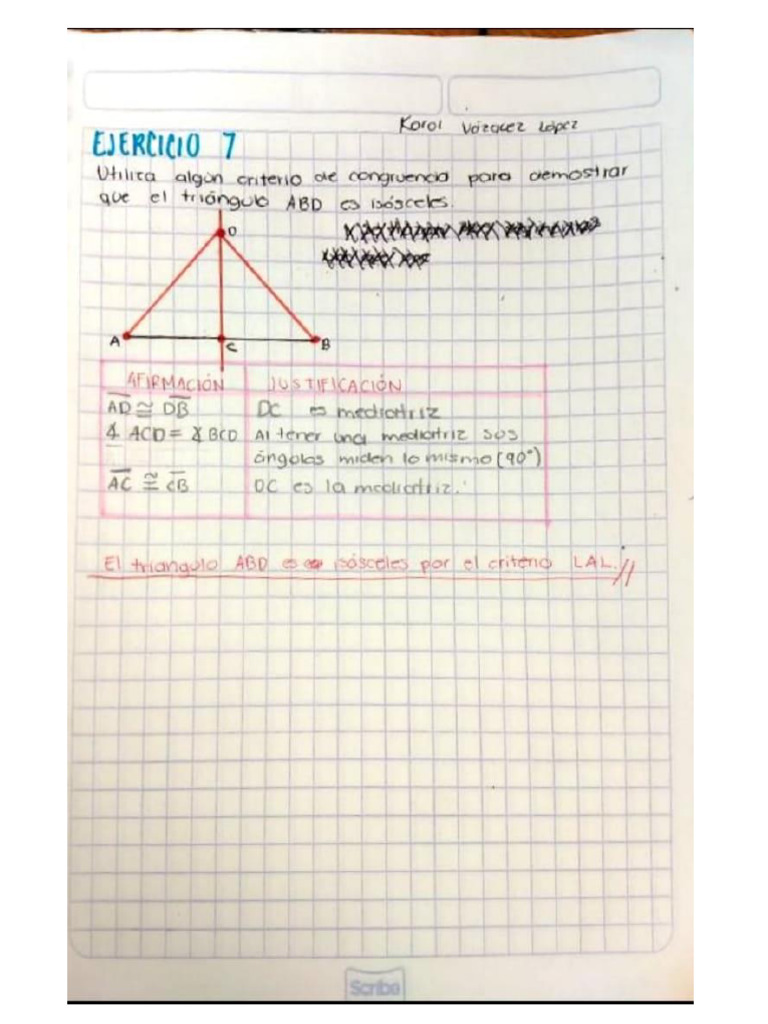 Karol Vázquez López
EJERCICIO 7
Utiliza algún criterio de congruencia para demostrar
que el triángulo ABD es isósceles.
D
A
C
B
AFIRMACIÓN JUSTIFICACIÓN
AD ≅ DB DC es mediatriz
∡ ACD = ∡ BCD Al tener una mediatriz sus
ángulos miden lo mismo (90°)
AC ≅ CB DC es la mediatriz.
El triangulo ABD es isósceles por el criterio LAL.//
Scribe